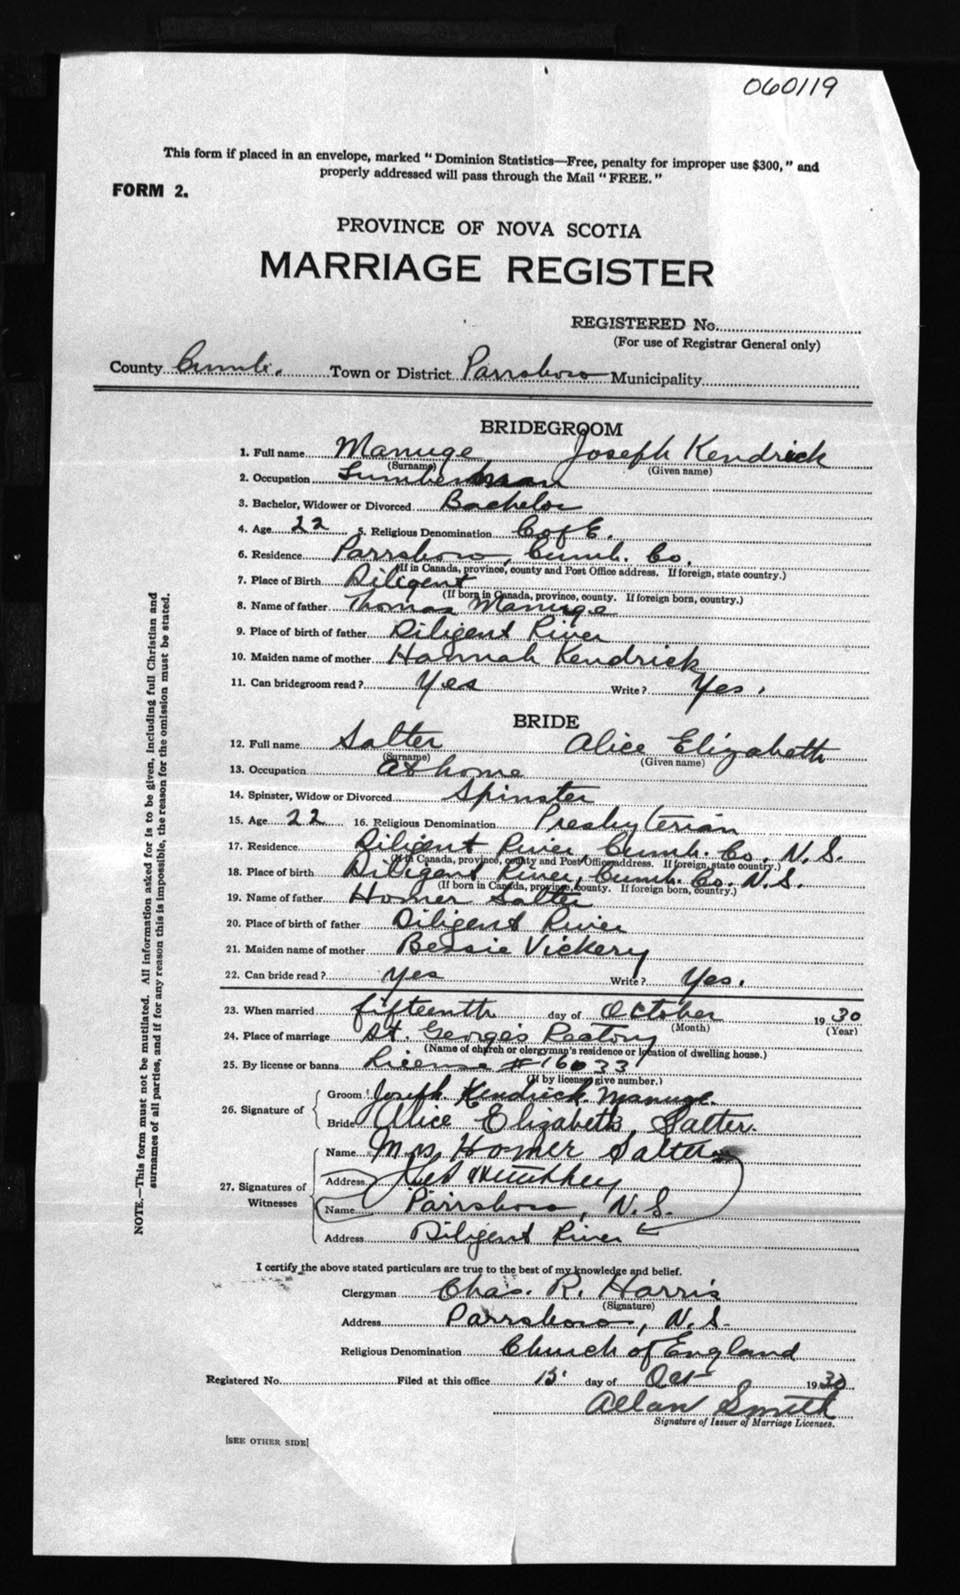 060119
This form if placed in an envelope, marked "Dominion Statistics—Free, penalty for improper use $300," and
properly addressed will pass through the Mail "FREE."
FORM 2.
PROVINCE OF NOVA SCOTIA
MARRIAGE REGISTER
REGISTERED No.
(For use of Registrar General only)
County Cumb. Town or District Parrsboro Municipality
BRIDEGROOM
1. Full name Manuge Joseph Kendrick
(Surname) (Given name)
2. Occupation Lumberman
3. Bachelor, Widower or Divorced Bachelor
4. Age 22 5. Religious Denomination C of E.
6. Residence Parrsboro, Cumb. Co.
(If in Canada, province, county and Post Office address. If foreign, state country.)
7. Place of Birth Diligent
(If born in Canada, province, county. If foreign born, country.)
8. Name of father Thomas Manuge
9. Place of birth of father Diligent River
10. Maiden name of mother Hannah Kendrick
11. Can bridegroom read? Yes Write? Yes.
BRIDE
12. Full name Salter Alice Elizabeth
(Surname) (Given name)
13. Occupation At home
14. Spinster, Widow or Divorced Spinster
15. Age 22 16. Religious Denomination Presbyterian
17. Residence Diligent River, Cumb. Co. N.S.
(If in Canada, province, county and Post Office address. If foreign, state country.)
18. Place of birth Diligent River, Cumb. Co. N.S.
(If born in Canada, province, county. If foreign born, country.)
19. Name of father Homer Salter
20. Place of birth of father Diligent River
21. Maiden name of mother Bessie Vickery
22. Can bride read? Yes Write? Yes.
23. When married fifteenth day of October 1930
(Month) (Year)
24. Place of marriage St. George's Rectory
(Name of church or clergyman's residence or location of dwelling house.)
25. By license or banns License #16033
(If by license give number.)
26. Signature of
Groom Joseph Kendrick Manuge.
Bride Alice Elizabeth Salter.
27. Signatures of Witnesses
Name Mrs Homer Salter
Address
Name Parrsboro, N.S.
Address Diligent River
I certify the above stated particulars are true to the best of my knowledge and belief.
Clergyman Chas. R. Harris
(Signature)
Address Parrsboro, N.S.
Religious Denomination Church of England
Registered No. Filed at this office 15 day of Oct 1930
Allan Smith
Signature of Issuer of Marriage Licenses.
[SEE OTHER SIDE]
NOTE.—This form must not be mutilated. All information asked for is to be given, including full Christian and
surnames of all parties, and if for any reason this is impossible, the reason for the omission must be stated.